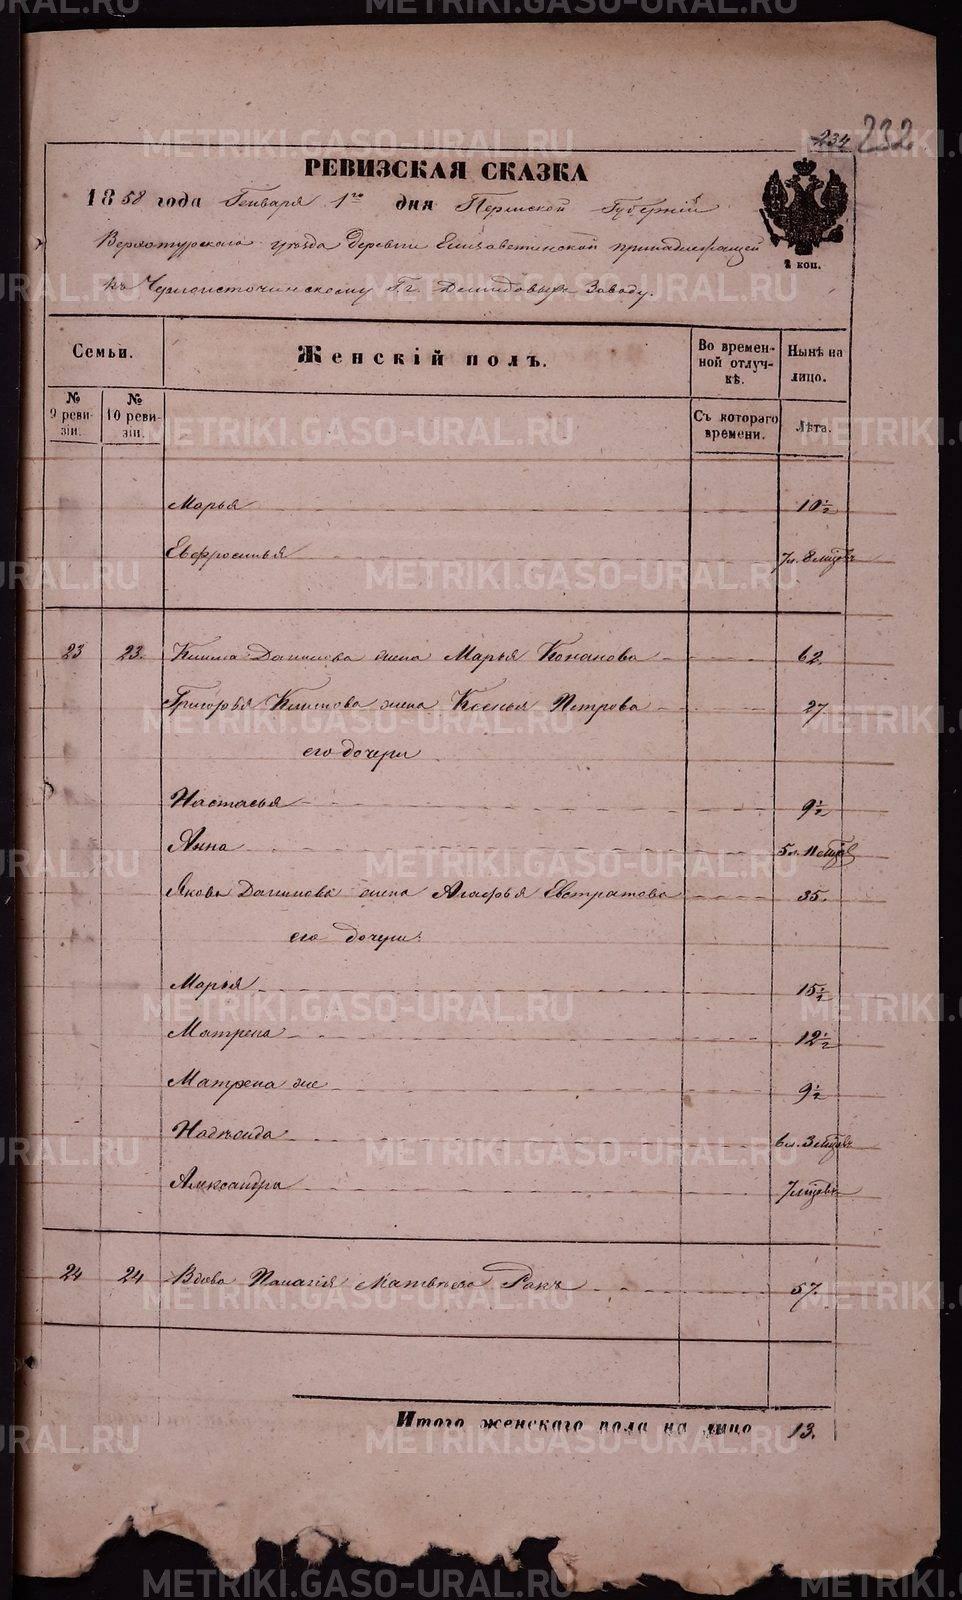 234 232
РЕВИЗСКАЯ СКАЗКА
1858 года Генваря 1го дня Пермской Губерніи
Верхотурскаго уѣзда Деревни Елизаветинской принадлежащей
къ Черноисточинскому Гг. Демидовыхъ Заводу.
2 коп.
Семьи.
Женскій полъ.
Во временной отлучкѣ.
Нынѣ на лицо.
№ 9 ревизіи.
№ 10 ревизіи.
Съ котораго времени.
Лѣта.
Марья 10 1/2
Евфросинья 7 л. 8 мцовъ
23 23. Клима Данилова жена Марья Конанова 62.
Григорья Климова жена Ксенья Петрова 27
его дочери
Настасья 9 1/2
Анна 5 л. 11 мцов
Якова Данилова жена Агафья Евстратова 35.
его дочери:
Марья 15 1/2
Матрена 12 1/2
Матрена же 9 1/2
Надежда 6 л. 3 мцовъ
Александра 7 мцовъ
24 24 Вдова Палагія Матвѣева Ракъ 57.
Итого женскаго пола на лицо 13.
METRIKI.GASO-URAL.RU